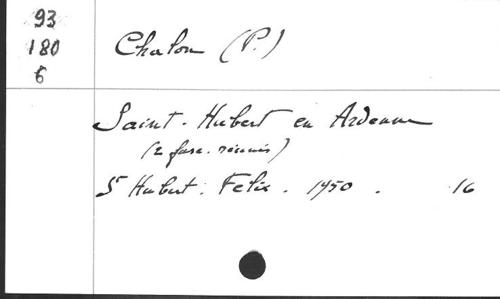 93
180
6
Chalon (P.)
Saint-Hubert en Ardenne
(2 fasc. réunis)
St Hubert. Felix. 1950. 16